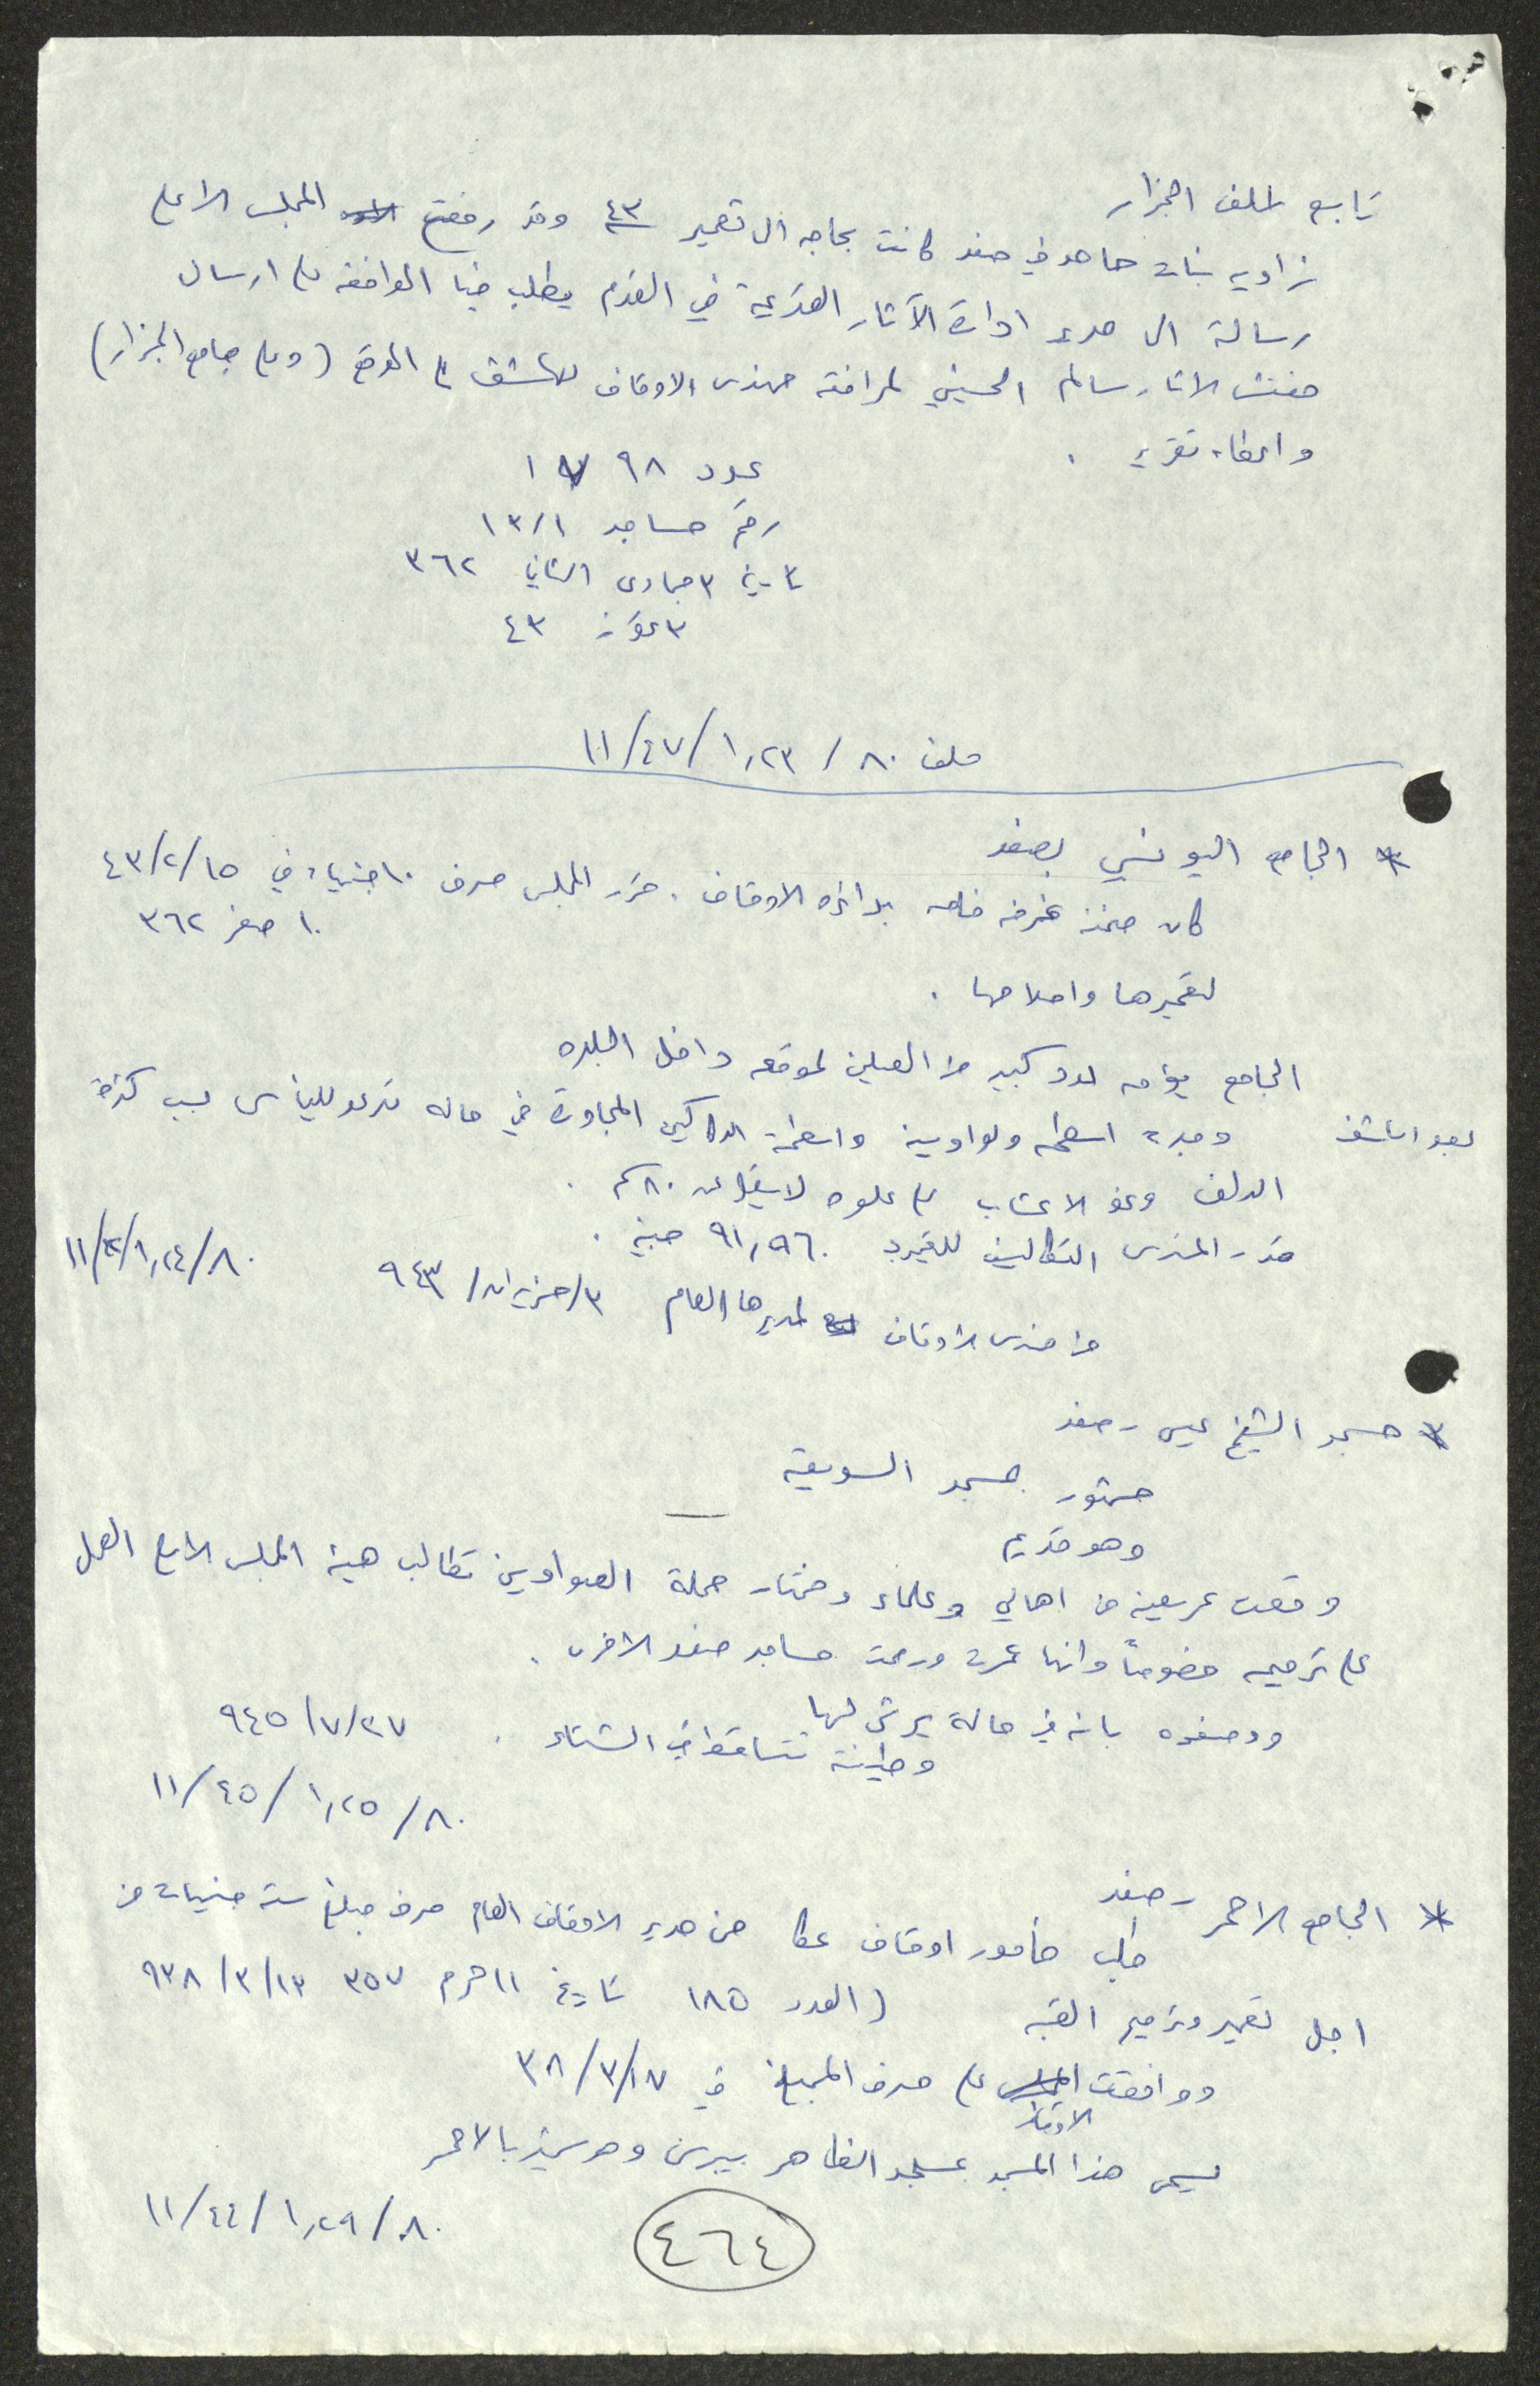 تابع لملف الجزار
زاويه بنات حامد في صفد كانت بحاجه الى تعمير ٤٣ وقد رفعت المجلس الاعلى
رسالة الى مدير ادارة الآثار القديمة في القدس يطلب فيها الموافقه على ارسال
مفتش الاثار سالم الحسيني لمرافقة مهندس الاوقاف للكشف على الموقع (وعلى جامع الجزار)
واعطاء تقرير .
عدد ٩٨ ١٧
رقم مساجد ١٣/١
تاريخ ٣ جمادى الثاني ٣٦٢
٣ تموز ٤٣
ملف ٨٠ / ١,٢٣ / ٤٧ / ١١
* الجامع اليونسي بصفد
كان ضمنه غرفه خاصه بدائرة الاوقاف . قرر المجلس صرف ١٠ جنيهات في ٤٣/٢/١٥
١٠ صفر ٣٦٢
لتعميرها واصلاحها .
الجامع يؤمه عدد كبير من المصلين لموقعه داخل البلده
بعد الكشف وجدت اسطحه ولواوينه واسطحة الدكاكين المجاورة في حاله تدعو لليأس بسبب كثرة
الدلف ونمو الاعشاب على علوه لا يقل عن ٨٠ سم .
قدر المهندس التكاليف للتعمير ٩١,٩٦٠ جنيه .
من مهندس الاوقاف لمديرها العام ٣/حزيران/٩٤٣
٨٠/١,٢٤/ /١١
* مسجد الشيخ عيسى - صفد
مشهور بمسجد السويقة
وهو قديم
وقعت عريضه من اهالي وعلماء ومختار محلة الصواوين تطالب هيئة المجلس الاعلى العمل
على ترميمه خصوصاً وانها عمرت ورممت مساجد صفد الاخرى .
ووصفوه بانه في حالة يرثى لها
وطينته تتساقط في الشتاء . ٩٤٥/٧/٢٧
٨٠/١,٢٥/٤٥/١١
* الجامع الاحمر - صفد
طلب مأمور اوقاف عكا من مدير الاوقاف العام صرف مبلغ ستة جنيهات من
اجل تعمير وترميم القبه (العدد ١٨٥ تاريخ ١١ محرم ٣٥٧ ٩٣٨/٣/١٣
ووافقت المجلس على صرف المبلغ في ٣٨/٣/١٧
الاوقاف
يسمى هذا المسجد بمسجد الظاهر بيبرس وهو شهير بالاحمر
٨٠/١,٢٩/٤٤/١١
٤٦٤